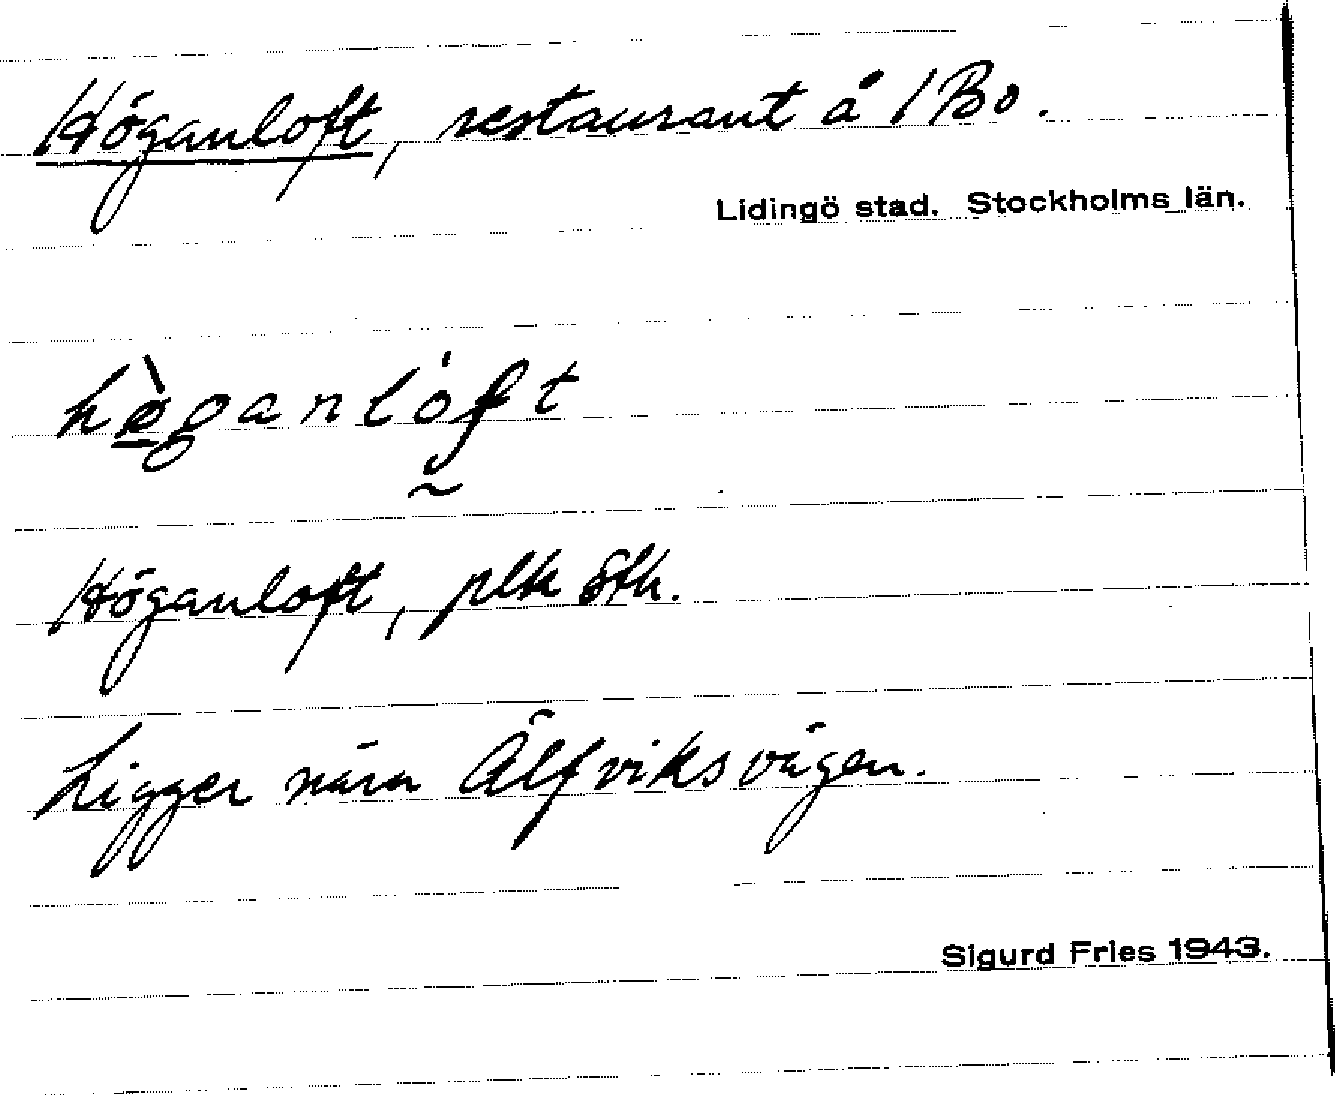 Höganloft, restaurant å 1 Bo.
Lidingö stad. Stockholms län.
hø̀ganlóft
Höganloft, plk Sth.
Ligger nära Älfviksvägen.
Sigurd Fries 1943.